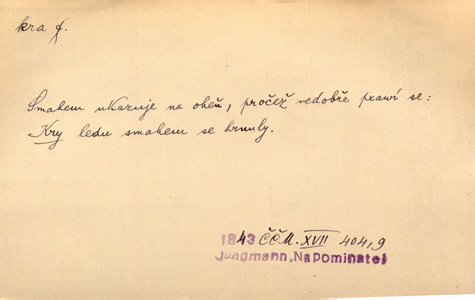 kra f.
Smahem ukazuje na oheň, pročež nedobře prawí se:
Kry ledu smahem se hrnuly.
1843 ČČM. XVII 404,9
Jungmann, Napominatel